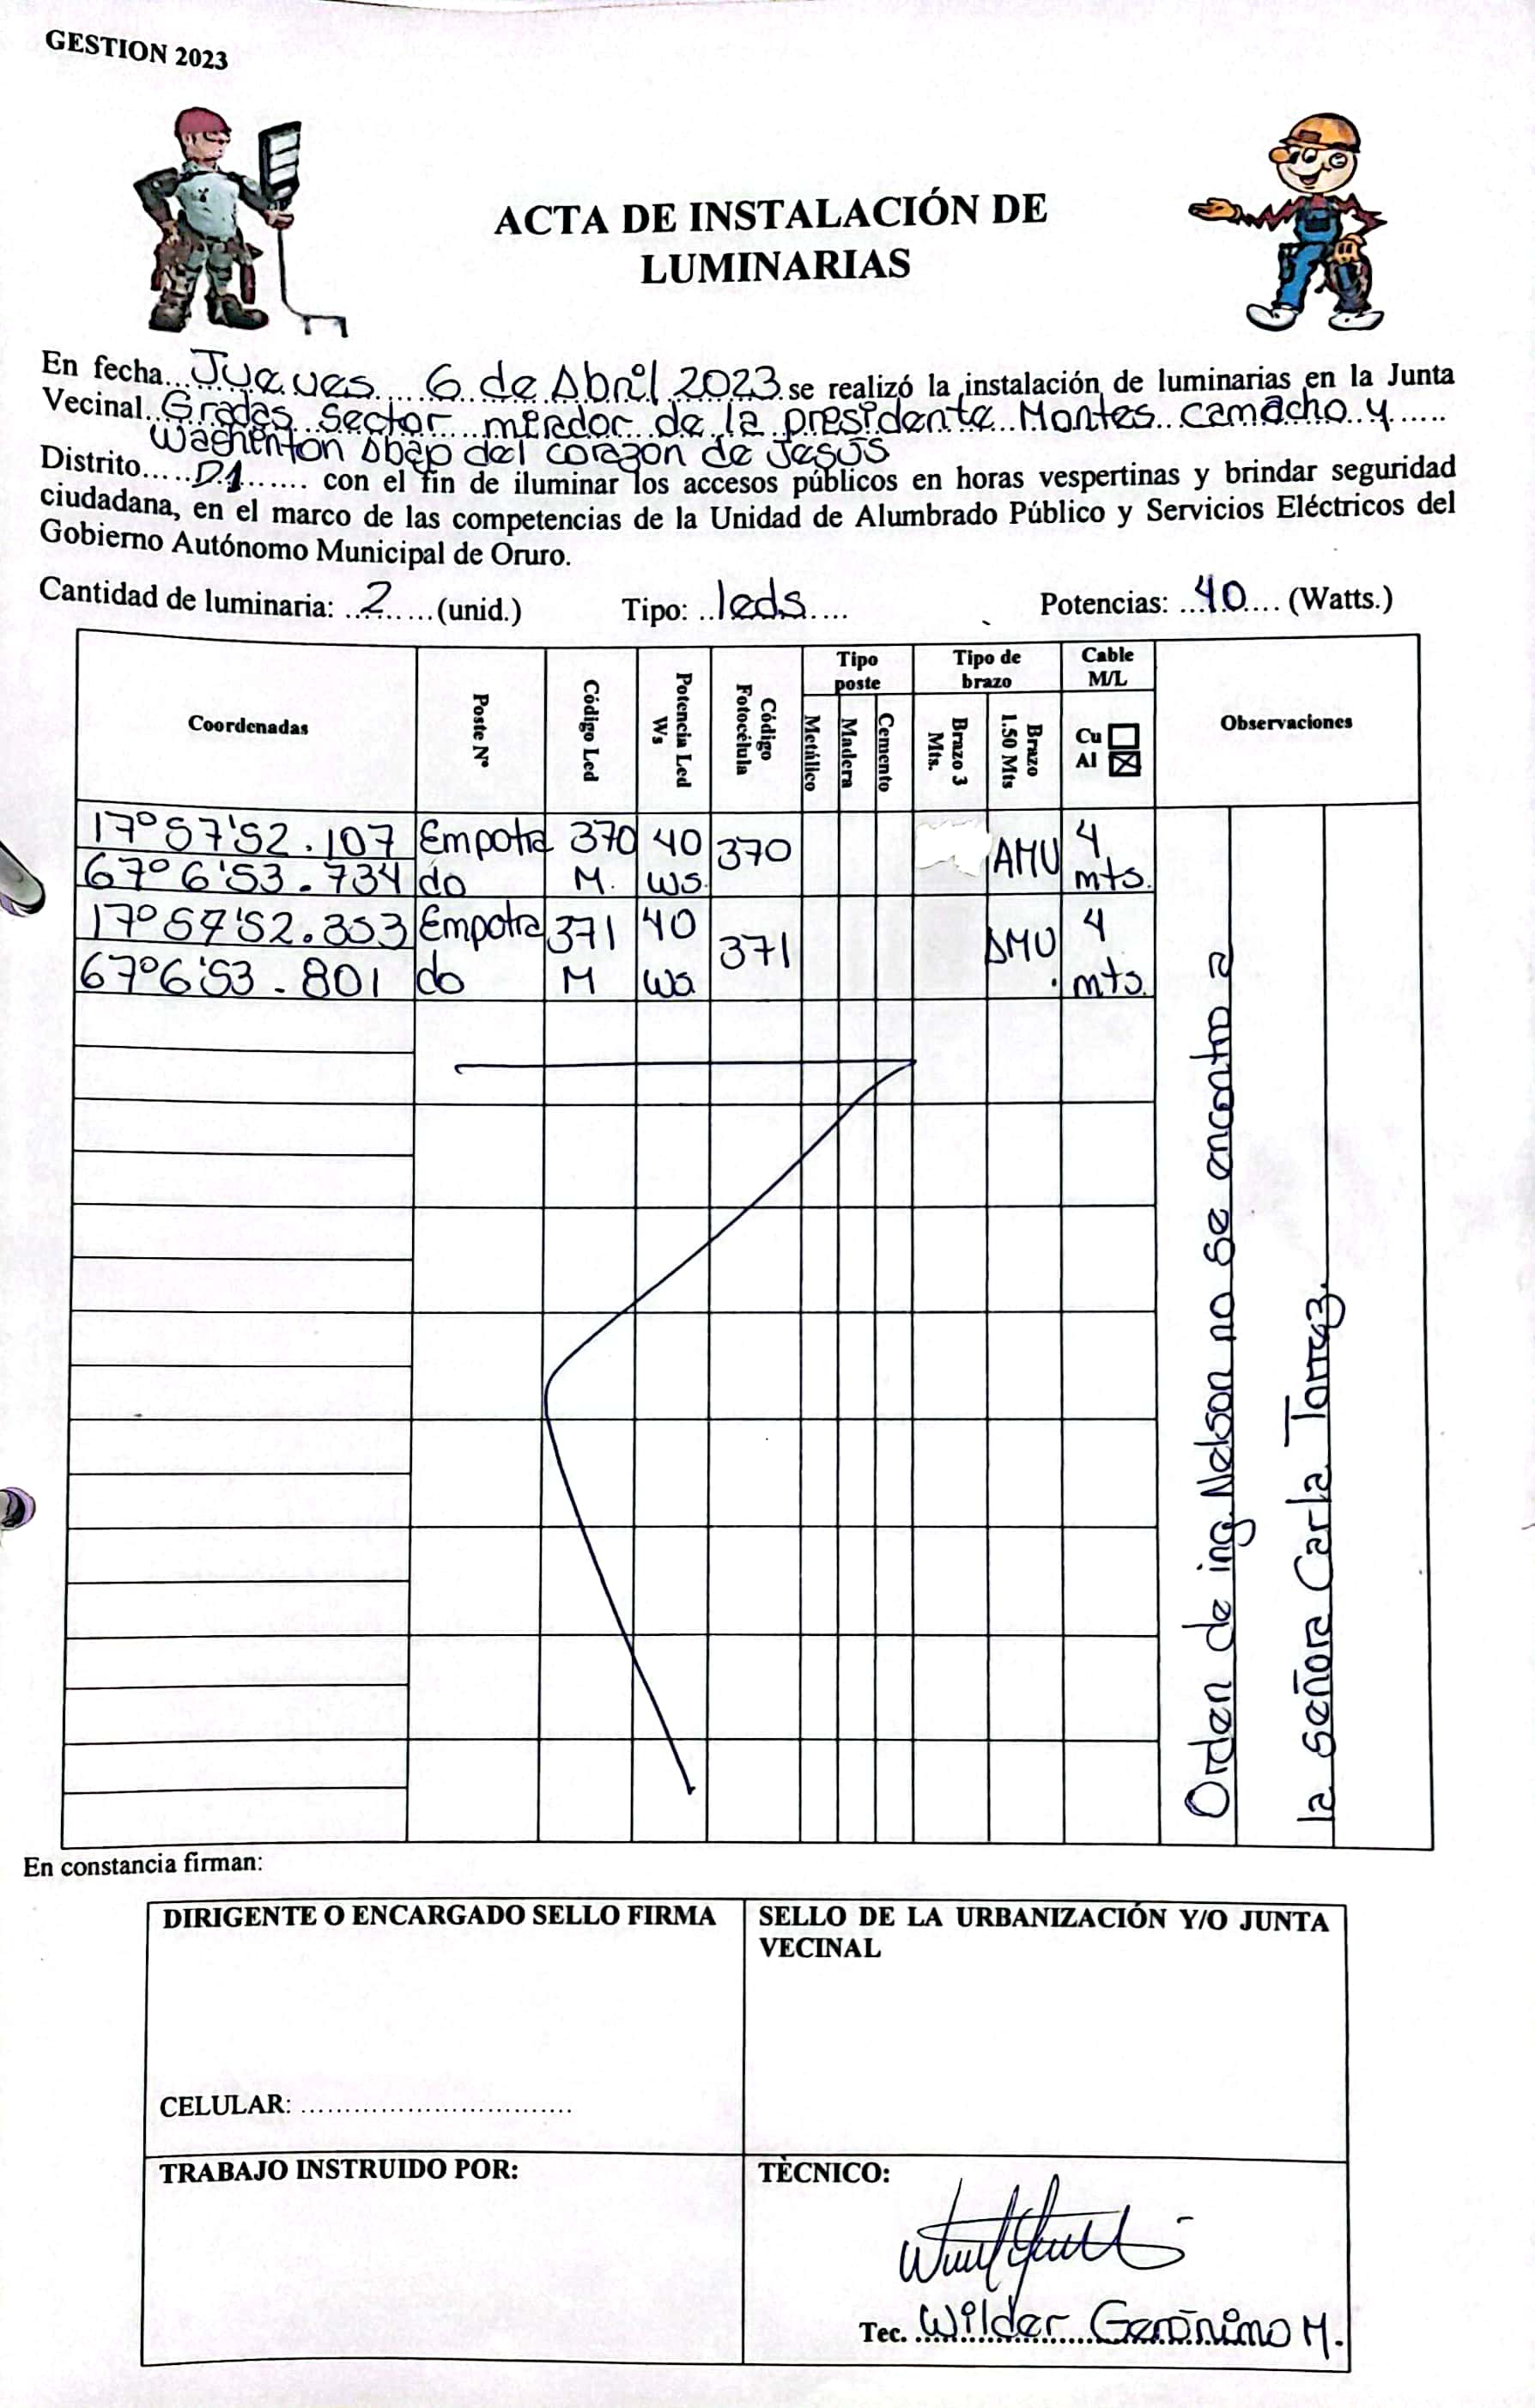 GESTION 2023
ACTA DE INSTALACIÓN DE
LUMINARIAS
En fecha Jueves 6 de Abril 2023 se realizó la instalación de luminarias en la Junta
Vecinal Gradas Sector mirador de la presidente Montes camacho y
Washinton Abajo del corazon de Jesús
Distrito D1 con el fin de iluminar los accesos públicos en horas vespertinas y brindar seguridad
ciudadana, en el marco de las competencias de la Unidad de Alumbrado Público y Servicios Eléctricos del
Gobierno Autónomo Municipal de Oruro.
Cantidad de luminaria: 2 (unid.) Tipo: leds Potencias: 40 (Watts.)
Coordenadas Poste Nº Código Led Potencia Led Ws Código Fotocélula Tipo poste Metálico Madera Cemento Tipo de brazo Brazo 3 Mts. Brazo 1.50 Mts Cable M/L Cu Al Observaciones
17º57'52.107 Empotra 370 40 370 AMU 4
67º6'53.734 do M. Ws. mts.
17º57'52.353 Empotra 371 40 371 AMU 4
67º6'53.801 do M Ws mts.
Orden de ing. Nelson no se encontro a
la señora Carla Torrez.
En constancia firman:
DIRIGENTE O ENCARGADO SELLO FIRMA
CELULAR: ...............................
SELLO DE LA URBANIZACIÓN Y/O JUNTA
VECINAL
TRABAJO INSTRUIDO POR:
TÈCNICO:
Tec. Wilder Gerónimo M.